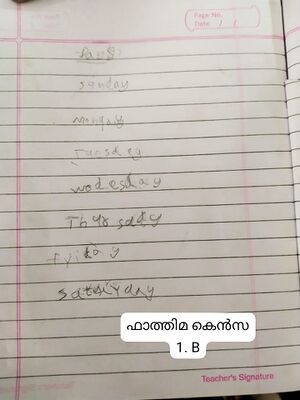 Page No.
Date / /
Days
sanday
Monday
Tuesdey
wodesday
Thursday
fyiday
satdiyday
ഫാത്തിമ കെൻസ
1. B
Teacher's Signature